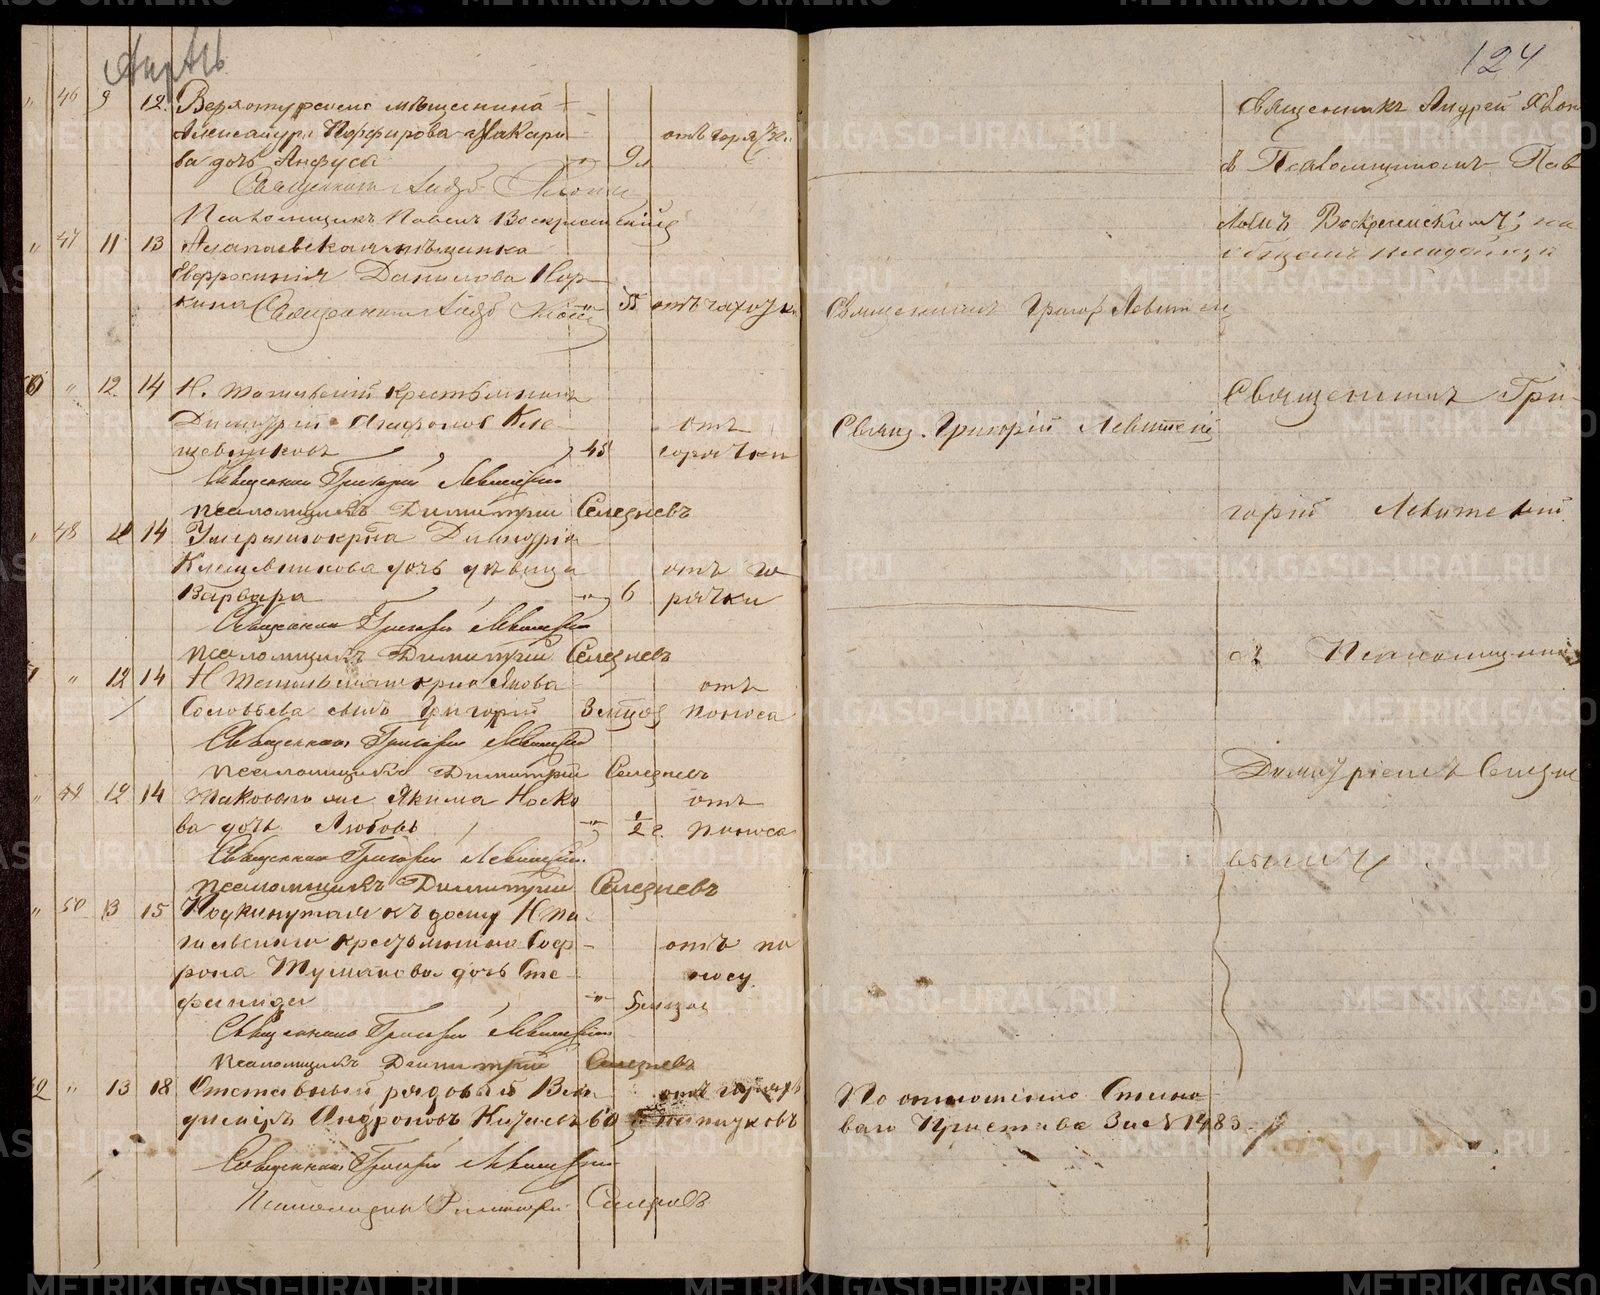 Апрѣль
124
46 9 12. Верхотурскаго мѣщанина
Александра Порфирова Макаро-
ва дочь Анфуса " 9 м
отъ горячк.
Священникъ Андрей
Псаломщикъ Павелъ Воскресенскій
" 47 11 13 Алапаевская мѣщанка
Евфросинія Данилова Кор-
кина " 55 отъ чахотки
Священникъ Андр
" 12. 14 Н. Тагильскій крестьянинъ
Димитрій Агафонов Кле-
щевниковъ 45
отъ
горячки
Священникъ Григорій Левитскій
псаломщикъ Димитрій Селезневъ
" 48 12 14 Умершаго кр-на Димитрія
Клещевникова дочь дѣвица
Варвара " 6
отъ го
рячки
Священникъ Григорій Левитскій
псаломщикъ Димитрій Селезневъ
" 12 14 Н Тагильскаго кр-на Якова
Соловьева сынъ Григорій 3 мѣсяц
отъ
поноса
Священникъ Григорій Левитскій
псаломщикъ Димитрій Селезневъ
" 49 12 14 Таковаго же Якима Носко
ва дочь Любовь " 1/2 г.
отъ
поноса
Священникъ Григорій Левитскій
псаломщикъ Димитрій Селезневъ
" 50 13 15 Подкинутая къ дому Н Та-
гильскаго крестьянина Соф-
рона Тумакова дочь Сте-
фанида " 5 мѣсяц
отъ по
носу
Священникъ Григорій Левитскій
псаломщикъ Димитрій Селезневъ
" 13 18 Отставный рядовый
Андроновъ 60
Священникъ Григорій Левитскій
Псаломщикъ Димитрій Селезневъ
Священникъ Григор Левитскій
Свящ. Григорій Левитскій
По отношенію Стано
ваго Пристава За № 1483
Священникъ Андрей
съ Псаломщикомъ Пав
ломъ Воскресенскимъ; на
общемъ кладбищѣ
Священникъ Гри-
горій Левитскій
съ Псаломщико
Димитріемъ Селезне
вымъ